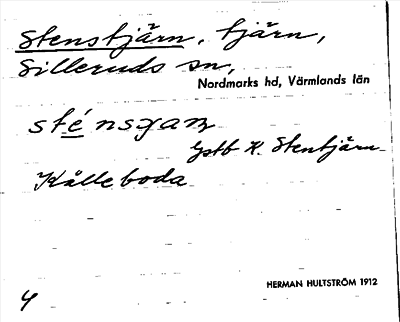 Stenstjärn, tjärn,
Silleruds sn,
Nordmarks hd, Värmlands län
Gstb K. Stentjärn
Kålleboda
HERMAN HULTSTRÖM 1912
4